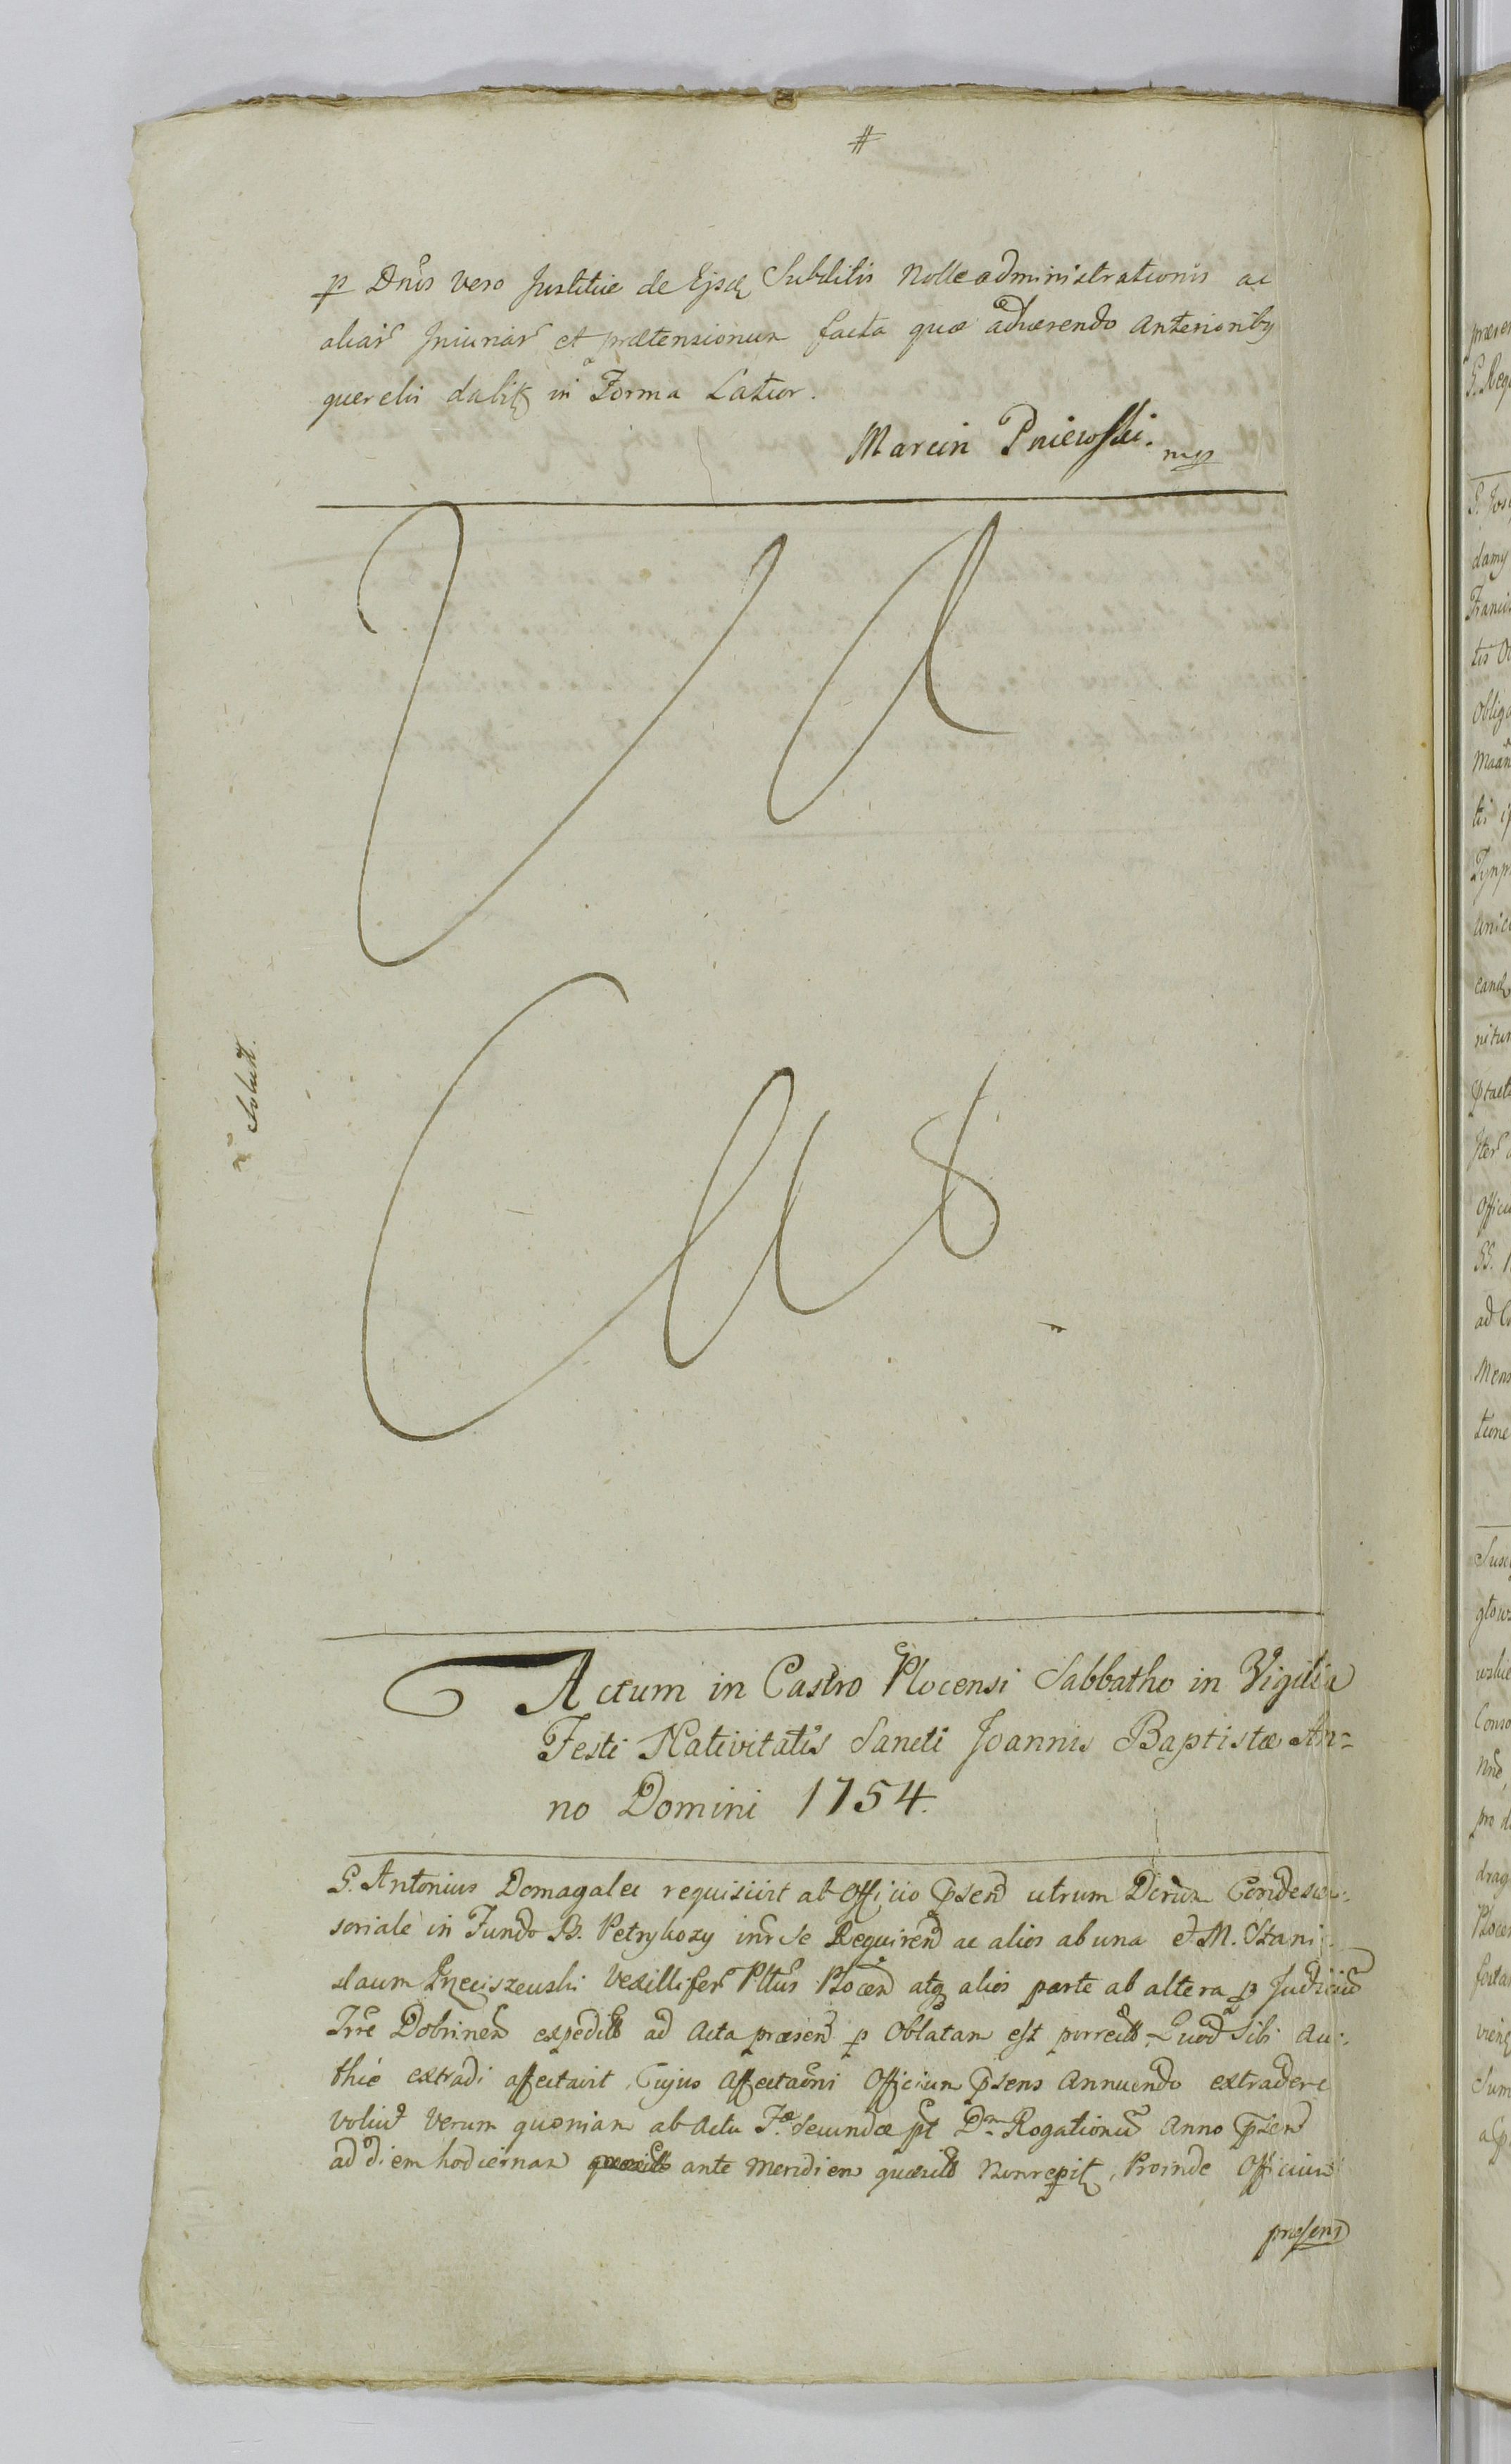 #
p Dnos vero Justitiæ de Ejsd Subditis Nolle administrationis ac
aliar Iniuriar et prætensionum facta quæ adhærendo anterioribg
querelis dabit in Forma Latior.
Marcin Pniewski. mp
Vacuus
Solut.
Actum in Castro Plocensi Sabbatho in Vigilia
Festi Nativitatis Sancti Joannis Baptistæ An=
no Domini 1754.
G. Antonius Domagalei requisivit ab Officio psend utrum Dcrtum Condescen=
soriale in Fundo B. Petrykozy intr se Requirend ac alios ab una et M. Stani=
slaum Krzeciszewski Vexillifer Pltus Plocen atq alios parte ab altera p Judicium
Trre Dobrinen expedit ad Acta præsen p Oblatam est porrect. Quod Sibi au=
thce extradi affectavit. Cujus Affectaoni Officium psens Annuendo extradere
voluit Verum quoniam ab Actu Fæ Secundæ pt Dm Rogationu Anno psen
ad diem hodiernam ante Meridiem quæsit Non repit, Proinde Officium
præsens